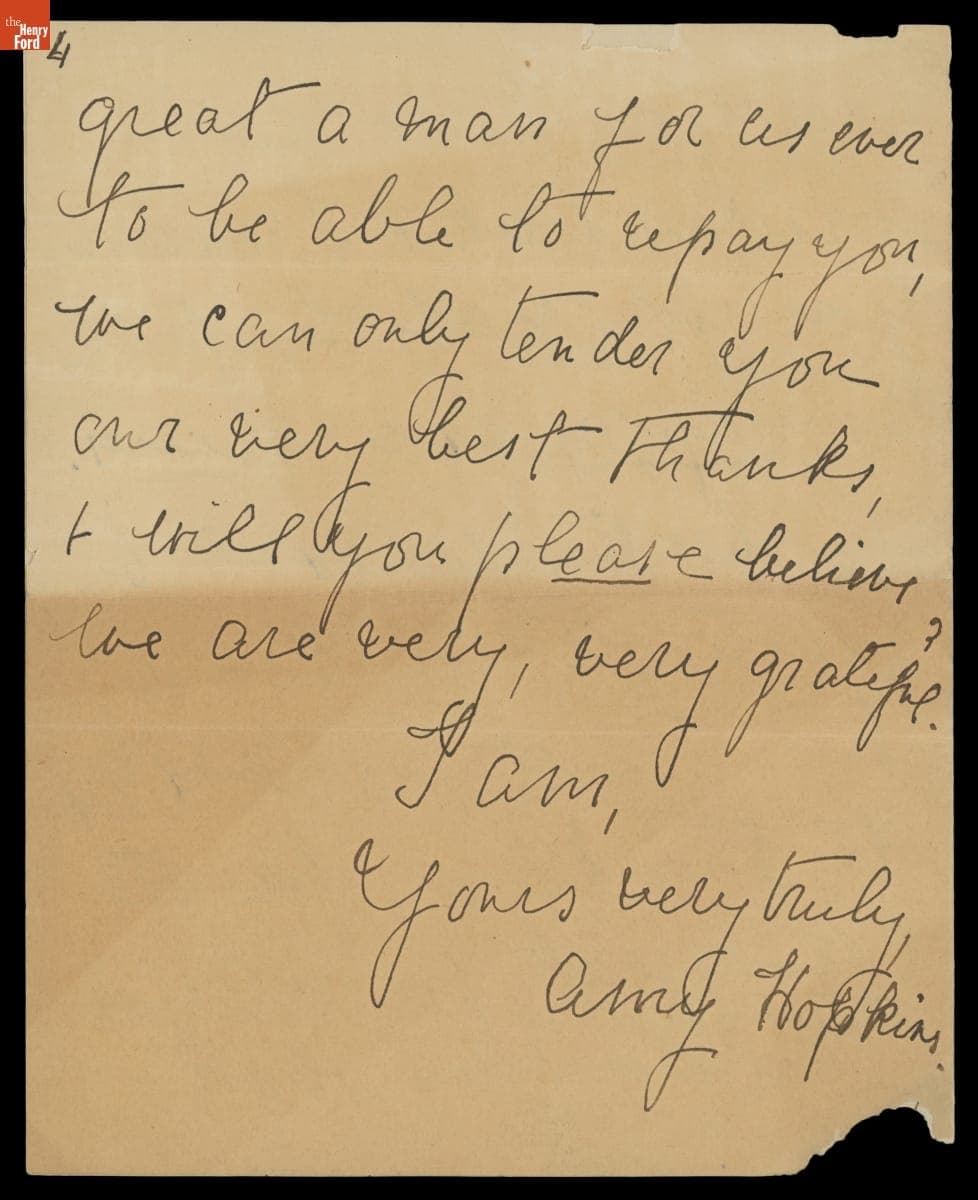 the
Henry
Ford
4
great a man for us ever
to be able to repay you,
we can only tender you
our very best thanks,
& will you please believe
we are very, very grateful?
I am,
Yours very truly,
Amy Hopkins.